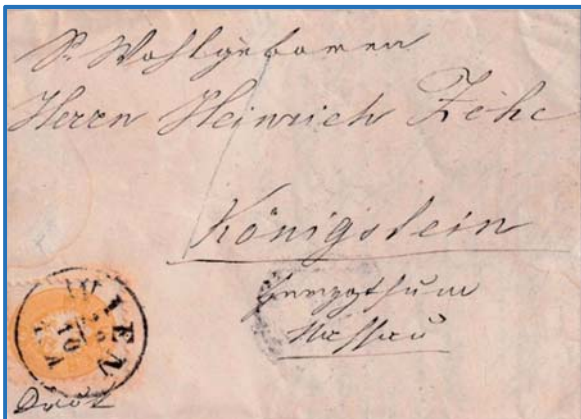 Sr Wohlgeboren
Herrn Heinrich Zohe
Königstein
Herzogthum
Nassau
WIEN
10